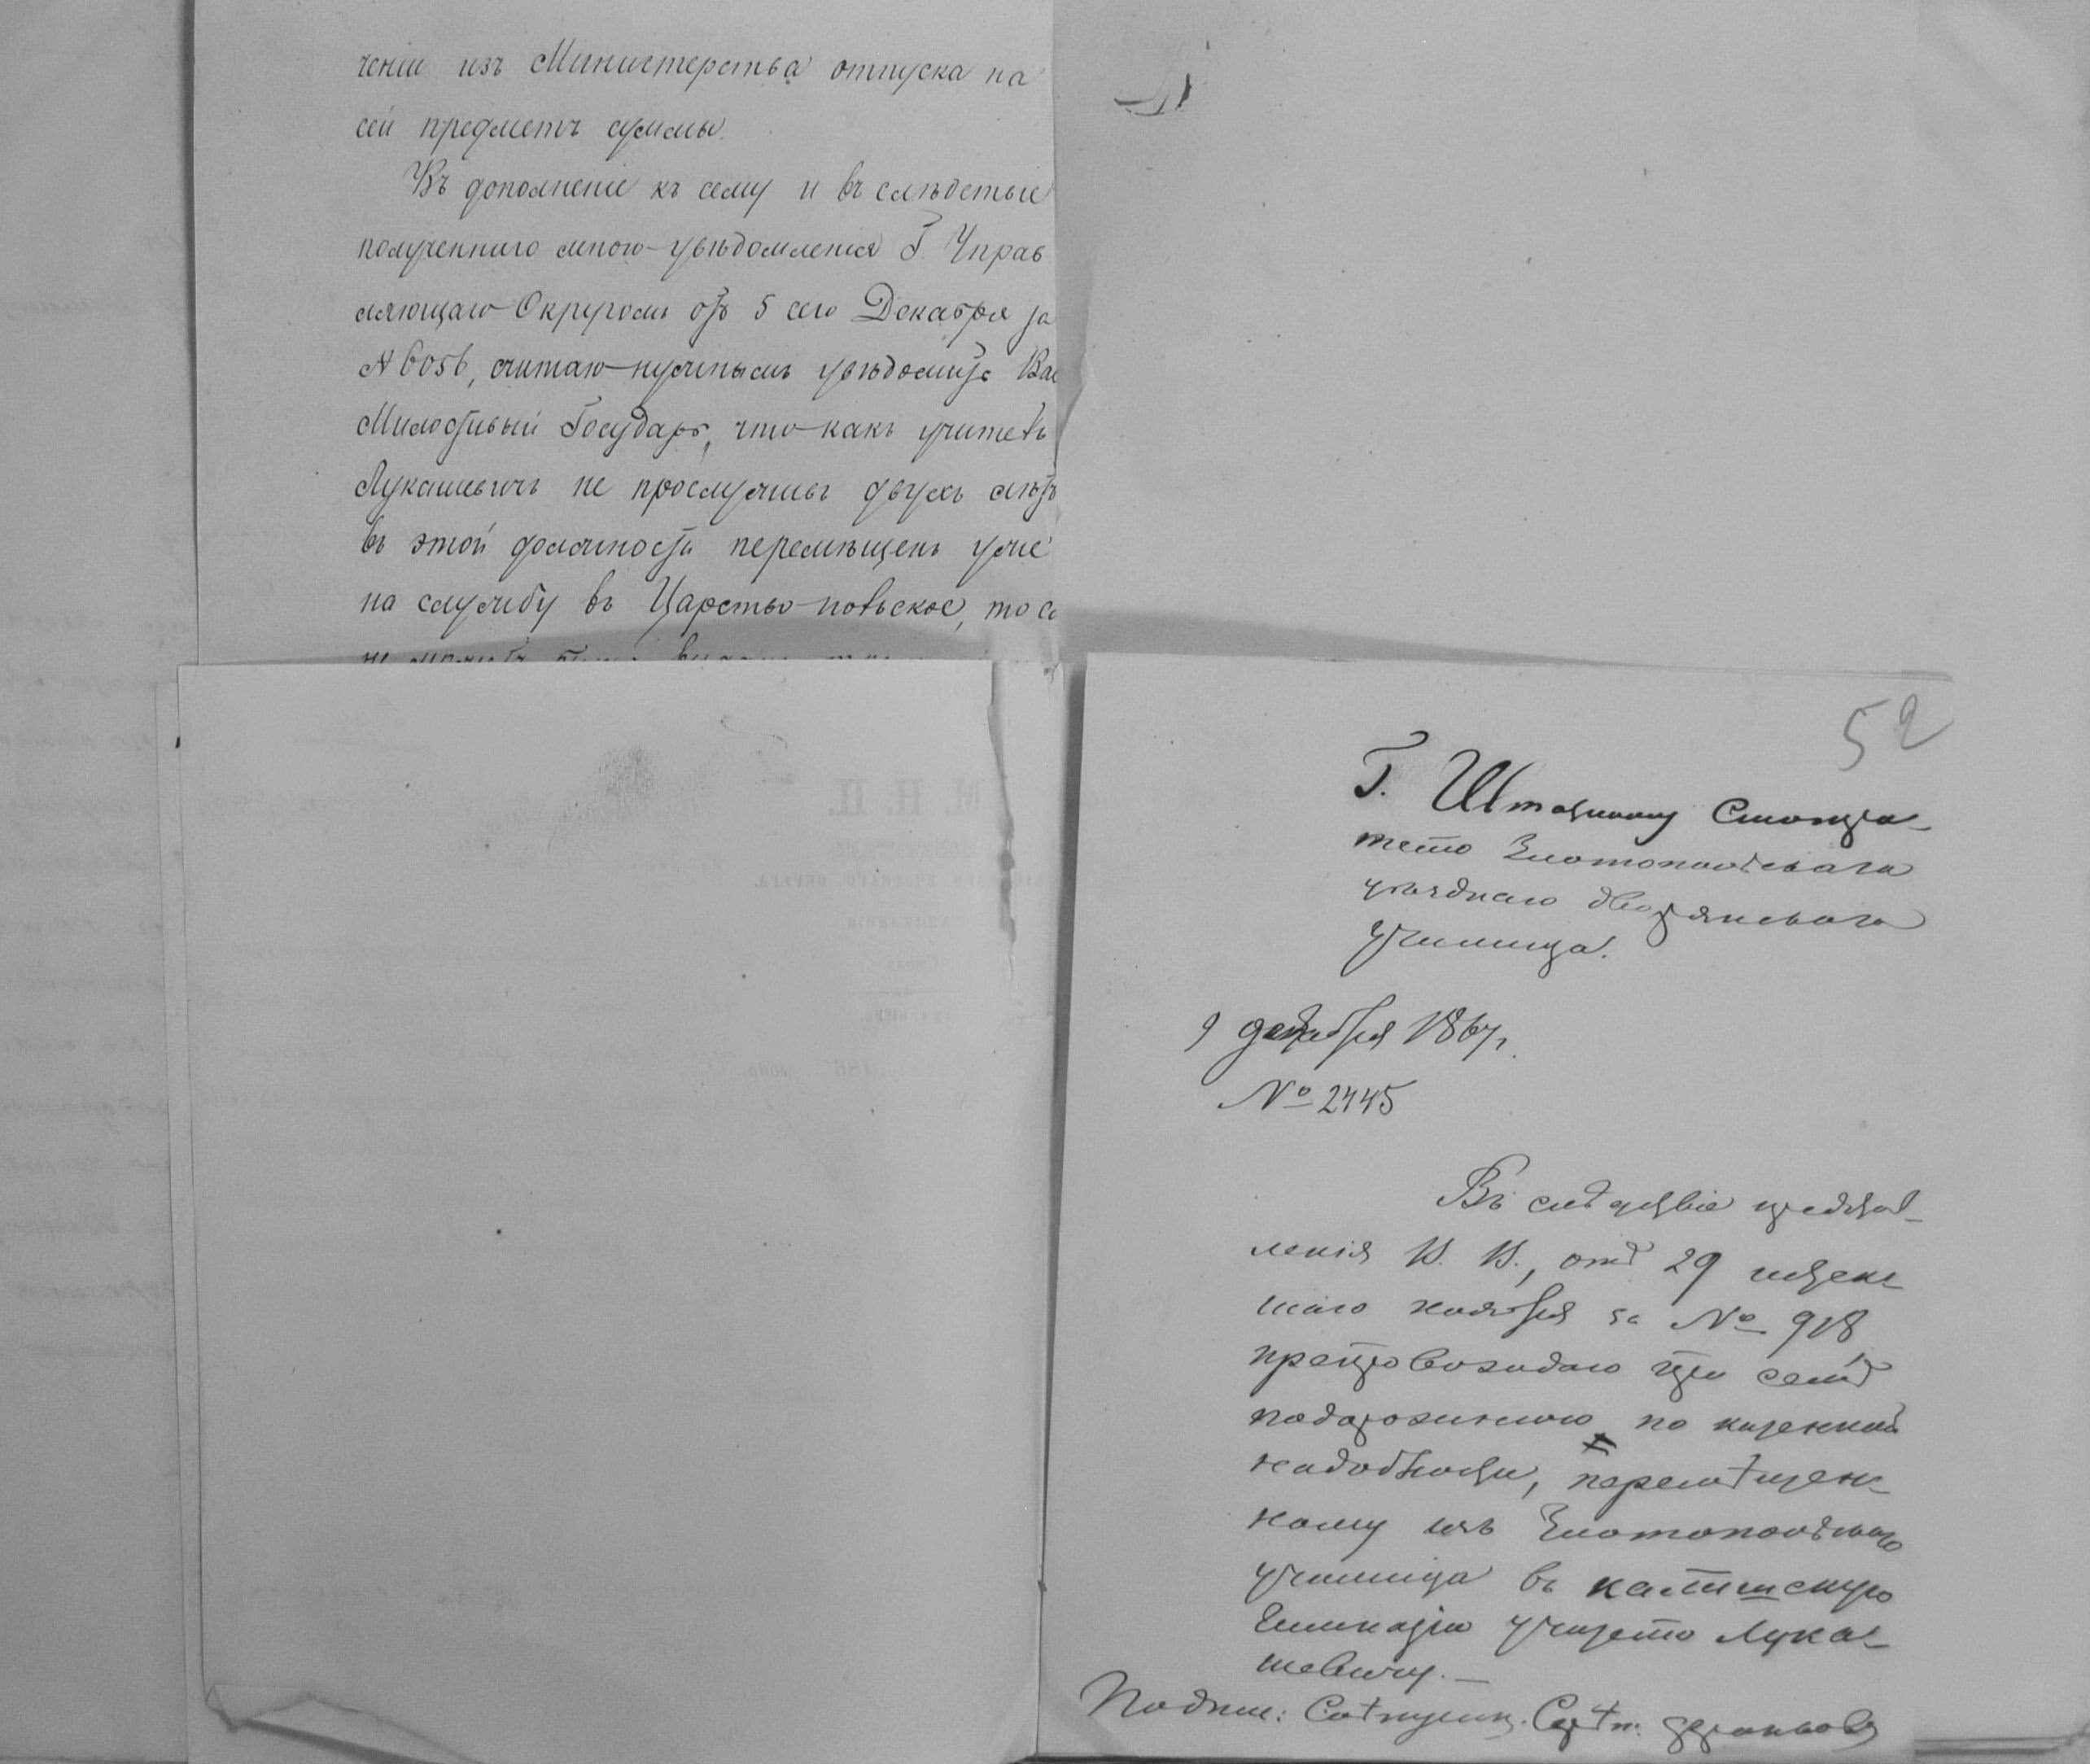 ченіи изъ Министерства отпуска на
сей предметъ суммы.
Въ дополненіе къ сему и въ слѣдствіе
полученнаго мною увѣдомленія Г. Управ
ляющаго Округомъ отъ 5 сего Декабря за
№ 6056, считаю нужнымъ увѣдомить Вас
Милостивый Государь, что какъ учитель
Лукашевичъ не прослуживъ двухъ лѣтъ
въ этой должности перемѣщенъ уже
на службу въ Царство польское, то
52
Г. Штатному Смотри-
телю Златопольскаго
уѣзднаго дворянскаго
училища.
9 декабря 1867 г.
№ 2445
Въ слѣдствіе представ-
ленія В. В., отъ 29 истек-
шаго ноября за № 918
препровождаю при семъ
подорожную по казенной
надобности, перемѣщен-
ному изъ Златопольскаго
училища въ калишскую
Гимназію учителю Лука-
шевичу.—
Подпис: